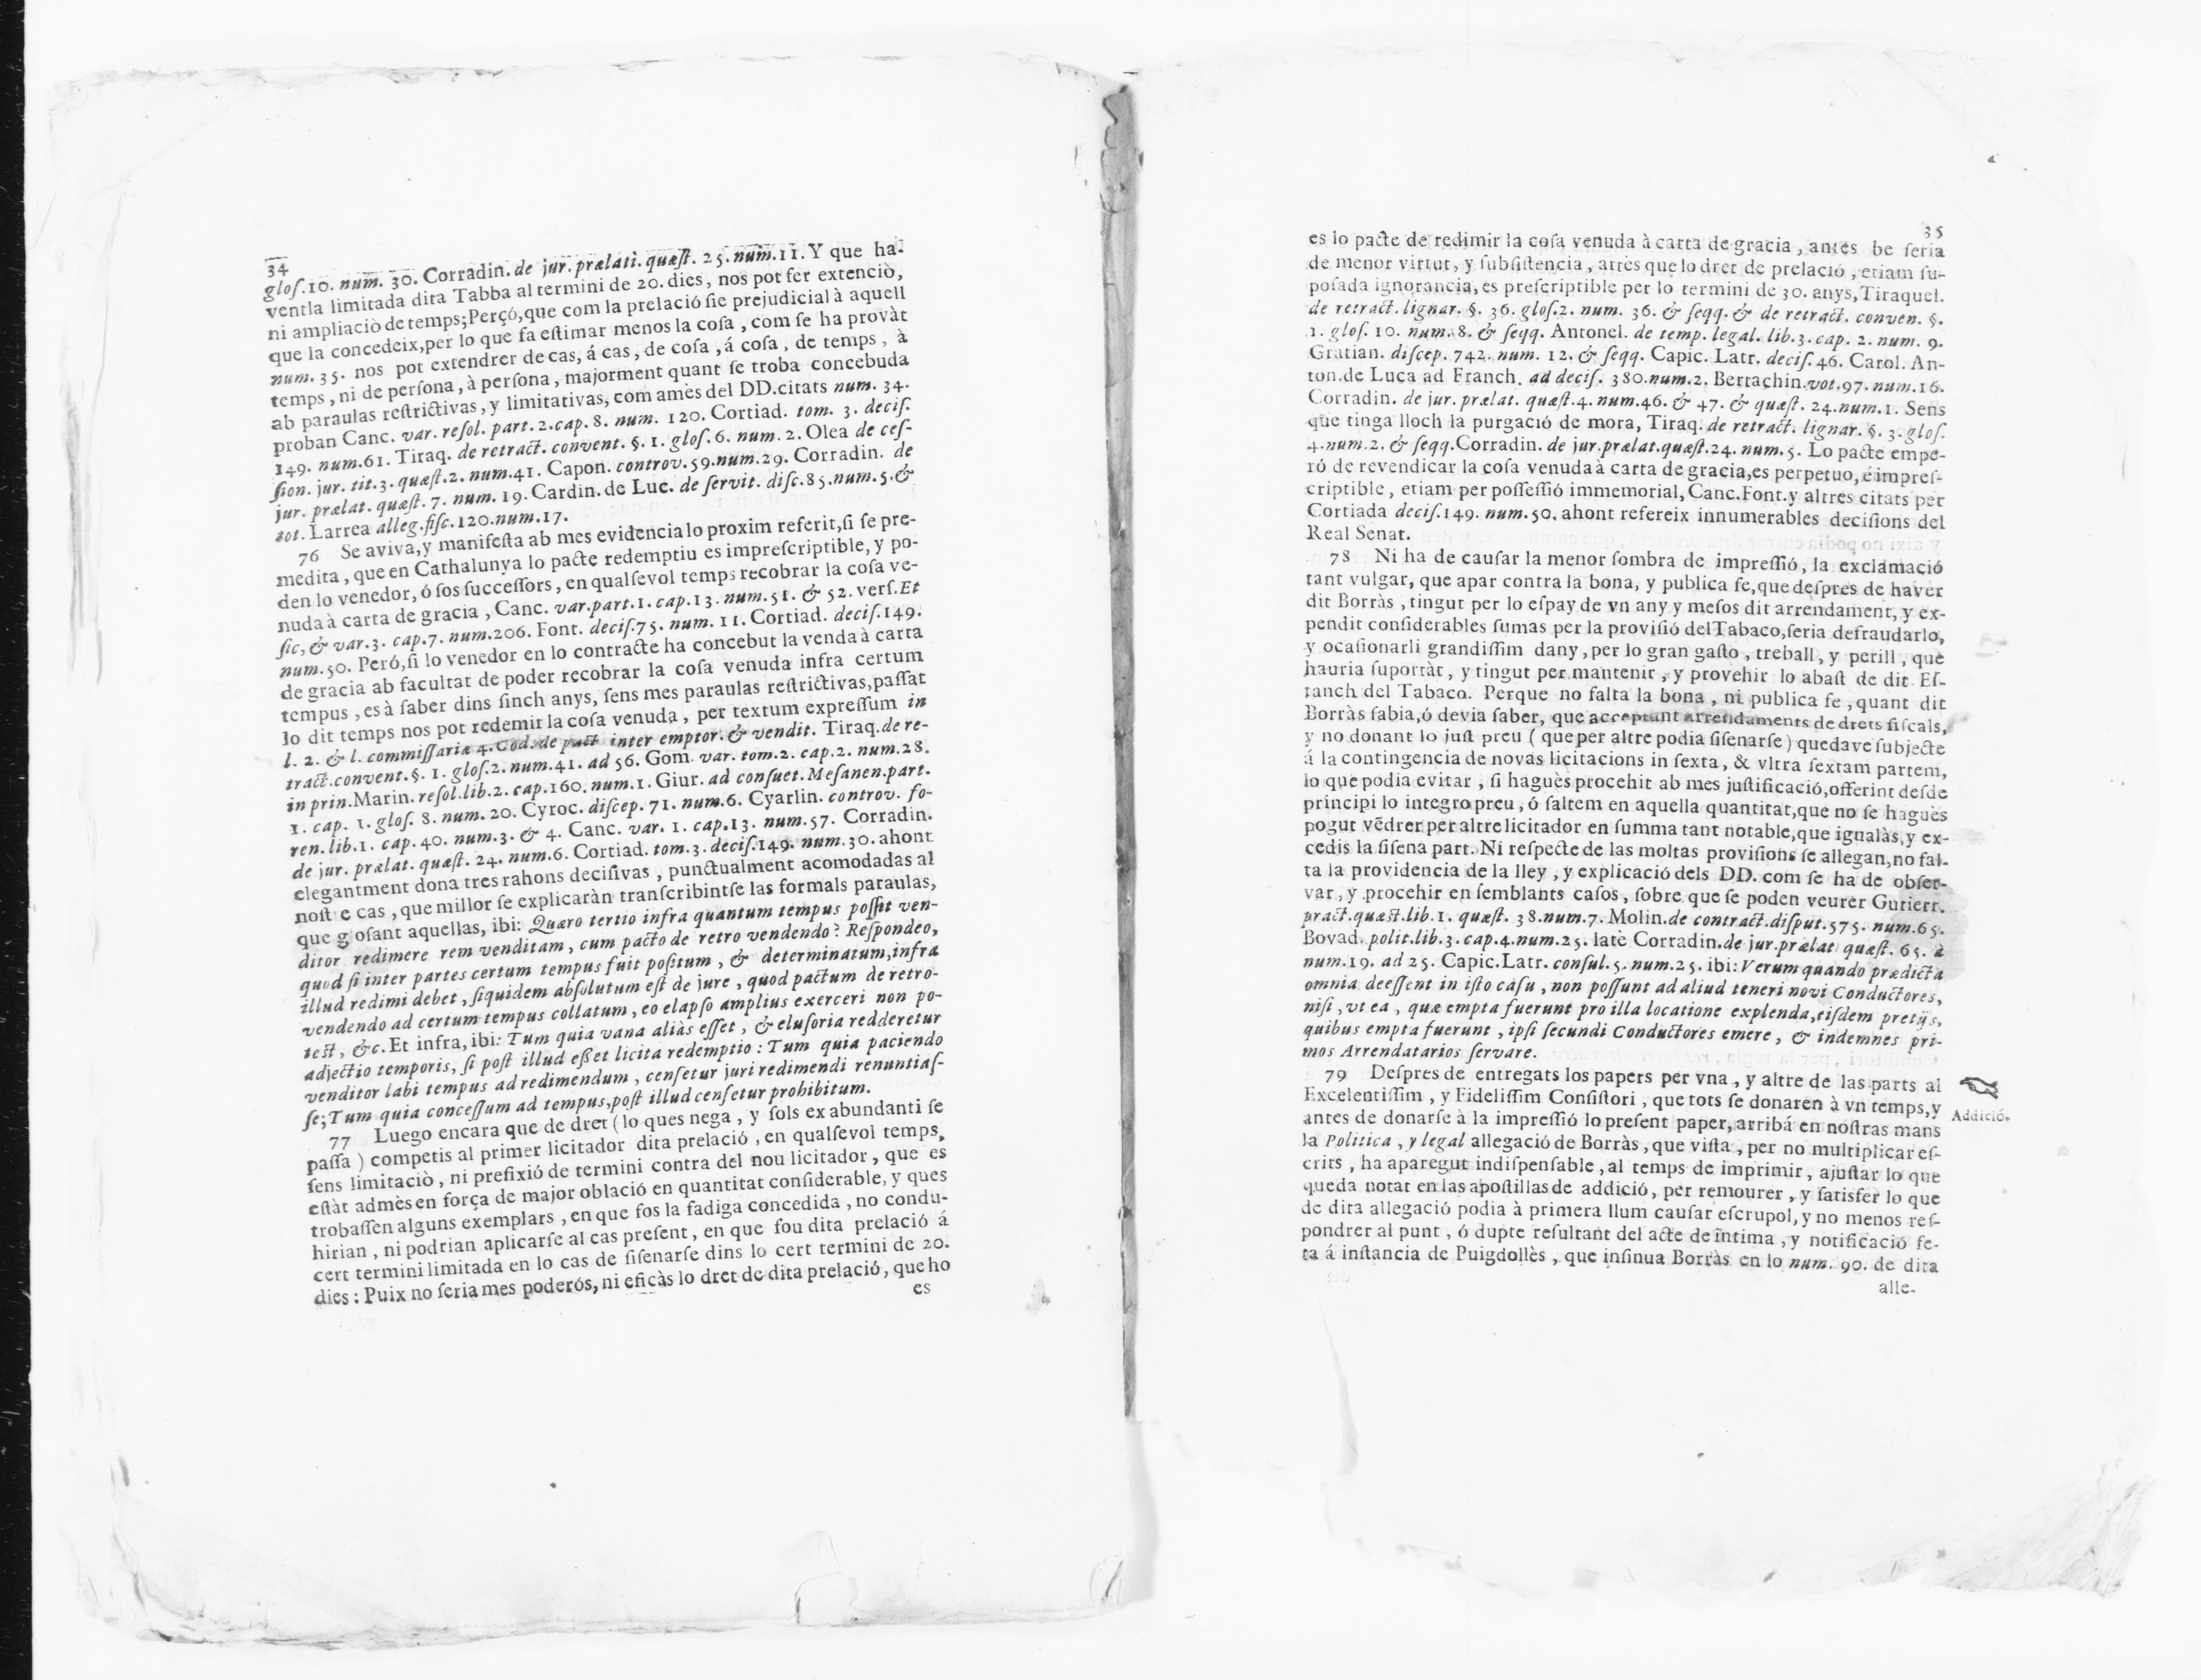 34
gloſ.10. num. 30. Corradin. de jur. prælati. quæſt. 25. num.11. Y que ha-
ventla limitada dita Tabba al termini de 20. dies, nos pot fer extenciò,
ni ampliaciò de temps; Perçó, que com la prelació ſie prejudicial à aquell
que la concedeix, per lo que fa eſtimar menos la coſa, com ſe ha provàt
num. 35. nos pot extendrer de cas, á cas, de coſa, á coſa, de temps, à
temps, ni de perſona, à perſona, majorment quant ſe troba concebuda
ab paraulas reſtrictivas, y limitativas, com amès del DD. citats num. 34.
proban Canc. var. reſol. part. 2. cap. 8. num. 120. Cortiad. tom. 3. deciſ.
149. num. 61. Tiraq. de retract. convent. §. 1. gloſ. 6. num. 2. Olea de ceſ-
ſion. jur. tit. 3. quæſt. 2. num. 41. Capon. controv. 59. num. 29. Corradin. de
jur. prælat. quæſt. 7. num. 19. Cardin. de Luc. de ſervit. diſc. 85. num. 5. &
tot. Larrea alleg. fiſc. 120. num. 17.
76 Se aviva, y manifeſta ab mes evidencia lo proxim referit, ſi ſe pre-
medita, que en Cathalunya lo pacte redemptiu es impreſcriptible, y po-
den lo venedor, ó ſos ſucceſſors, en qualſevol temps recobrar la coſa ve-
nuda à carta de gracia, Canc. var. part. 1. cap. 13. num. 51. & 52. verſ. Et
ſic, & var. 3. cap. 7. num. 206. Font. deciſ. 75. num. 11. Cortiad. deciſ. 149.
num. 50. Peró, ſi lo venedor en lo contracte ha concebut la venda à carta
de gracia ab facultat de poder recobrar la coſa venuda infra certum
tempus, es à ſaber dins ſinch anys, ſens mes paraulas reſtrictivas, paſſat
lo dit temps nos pot redemir la coſa venuda, per textum expreſſum in
l. 2. & l. commiſſariæ 4. Cod. de pact inter emptor. & vendit. Tiraq. de re-
tract. convent. §. 1. gloſ. 2. num. 41. ad 56. Gom. var. tom. 2. cap. 2. num. 28.
in prin. Marin. reſol. lib. 2. cap. 160. num. 1. Giur. ad conſuet. Meſanen. part.
1. cap. 1. gloſ. 8. num. 20. Cyroc. diſcep. 71. num. 6. Cyarlin. controv. fo-
ren. lib. 1. cap. 40. num. 3. & 4. Canc. var. 1. cap. 13. num. 57. Corradin.
de jur. prælat. quæſt. 24. num. 6. Cortiad. tom. 3. deciſ. 149. num. 30. ahont
elegantment dona tres rahons deciſivas, punctualment acomodadas al
noſt e cas, que millor ſe explicaràn tranſcribintſe las formals paraulas,
que g oſant aquellas, ibi: Quæro tertio infra quantum tempus poſſit ven-
ditor redimere rem venditam, cum pacto de retro vendendo? Reſpondeo,
quod ſi inter partes certum tempus fuit poſitum, & determinatum, infra
illud redimi debet, ſiquidem abſolutum eſt de jure, quod pactum de retro-
vendendo ad certum tempus collatum, eo elapſo amplius exerceri non po-
teſt, &c. Et infra, ibi: Tum quia vana aliàs eſſet, & eluſoria redderetur
adjectio temporis, ſi poſt illud eßet licita redemptio: Tum quia paciendo
venditor labi tempus ad redimendum, cenſetur juri redimendi renuntiaſ-
ſe; Tum quia conceſſum ad tempus, poſt illud cenſetur prohibitum.
77 Luego encara que de dret (lo ques nega, y ſols ex abundanti ſe
paſſa) competis al primer licitador dita prelació, en qualſevol temps,
ſens limitaciò, ni prefixió de termini contra del nou licitador, que es
eſtàt admès en força de major oblació en quantitat conſiderable, y ques
trobaſſen alguns exemplars, en que fos la fadiga concedida, no condu-
hirian, ni podrian aplicarſe al cas preſent, en que fou dita prelació á
cert termini limitada en lo cas de ſiſenarſe dins lo cert termini de 20.
dies: Puix no ſeria mes poderós, ni eficàs lo dret de dita prelació, que ho
es
35
es lo pacte de redimir la coſa venuda à carta de gracia, antes be ſeria
de menor virtut, y ſubſiſtencia, attès que lo dret de prelació, etiam ſu-
poſada ignorancia, es preſcriptible per lo termini de 30. anys, Tiraquel.
de retract. lignar. §. 36. gloſ. 2. num. 36. & ſeqq. & de retract. conven. §.
1. gloſ. 10. num. 8. & ſeqq. Antonel. de temp. legal. lib. 3. cap. 2. num. 9.
Gratian. diſcep. 742. num. 12. & ſeqq. Capic. Latr. deciſ. 46. Carol. An-
ton. de Luca ad Franch. ad deciſ. 380. num. 2. Bertachin. vot. 97. num. 16.
Corradin. de jur. prælat. quæſt. 4. num. 46. & 47. & quæſt. 24. num. 1. Sens
que tinga lloch la purgació de mora, Tiraq. de retract. lignar. §. 3. gloſ.
4. num. 2. & ſeqq. Corradin. de jur. prælat. quæſt. 24. num. 5. Lo pacte empe-
ró de revendicar la coſa venuda à carta de gracia, es perpetuo, é impreſ-
criptible, etiam per poſſeſſió immemorial, Canc. Font. y altres citats per
Cortiada deciſ. 149. num. 50. ahont refereix innumerables deciſions del
Real Senat.
78 Ni ha de cauſar la menor ſombra de impreſſió, la exclamació
tant vulgar, que apar contra la bona, y publica fe, que deſpres de haver
dit Borràs, tingut per lo eſpay de vn any y meſos dit arrendament, y ex-
pendit conſiderables ſumas per la proviſió del Tabaco, ſeria defraudarlo,
y ocaſionarli grandiſſim dany, per lo gran gaſto, treball, y perill, que
hauria ſuportàt, y tingut per mantenir, y provehir lo abaſt de dit Eſ-
tanch del Tabaco. Perque no falta la bona, ni publica fe, quant dit
Borràs ſabia, ó devia ſaber, que acceptant arrendaments de drets fiſcals,
y no donant lo juſt preu (que per altre podia ſiſenarſe) quedave ſubjecte
á la contingencia de novas licitacions in ſexta, & vltra ſextam partem,
lo que podia evitar, ſi hagués procehit ab mes juſtificació, offerint deſde
principi lo integro preu, ó ſaltem en aquella quantitat, que no ſe haguès
pogut vẽdrer per altre licitador en ſumma tant notable, que igualàs, y ex-
cedis la ſiſena part. Ni reſpecte de las moltas proviſions ſe allegan, no fal-
ta la providencia de la lley, y explicació dels DD. com ſe ha de obſer-
var, y procehir en ſemblants caſos, ſobre que ſe poden veurer Gutierr.
pract. quæst. lib. 1. quæſt. 38. num. 7. Molin. de contract. diſput. 575. num. 65.
Bovad. polit. lib. 3. cap. 4. num. 25. latè Corradin. de jur. prælat quæſt. 65. à
num. 19. ad 25. Capic. Latr. conſul. 5. num. 25. ibi: Verum quando prædicta
omnia deeſſent in iſto caſu, non poſſunt ad aliud teneri novi Conductores,
niſi, vt ea, quæ empta fuerunt pro illa locatione explenda, eiſdem pretijs,
quibus empta fuerunt, ipſi ſecundi Conductores emere, & indemnes pri-
mos Arrendatarios ſervare.
79 Deſpres de entregats los papers per vna, y altre de las parts al
Excelentiſſim, y Fideliſſim Conſiſtori, que tots ſe donaren à vn temps, y
antes de donarſe à la impreſſió lo preſent paper, arribá en noſtras mans
la Politica, y legal allegació de Borràs, que viſta, per no multiplicar eſ-
crits, ha aparegut indiſpenſable, al temps de imprimir, ajuſtar lo que
queda notat en las apoſtillas de addició, per remourer, y ſatisfer lo que
de dita allegació podia à primera llum cauſar eſcrupol, y no menos reſ-
pondrer al punt, ó dupte reſultant del acte de intima, y notificació fe-
ta á inſtancia de Puigdollès, que inſinua Borràs en lo num. 90. de dita
alle-
Addició.